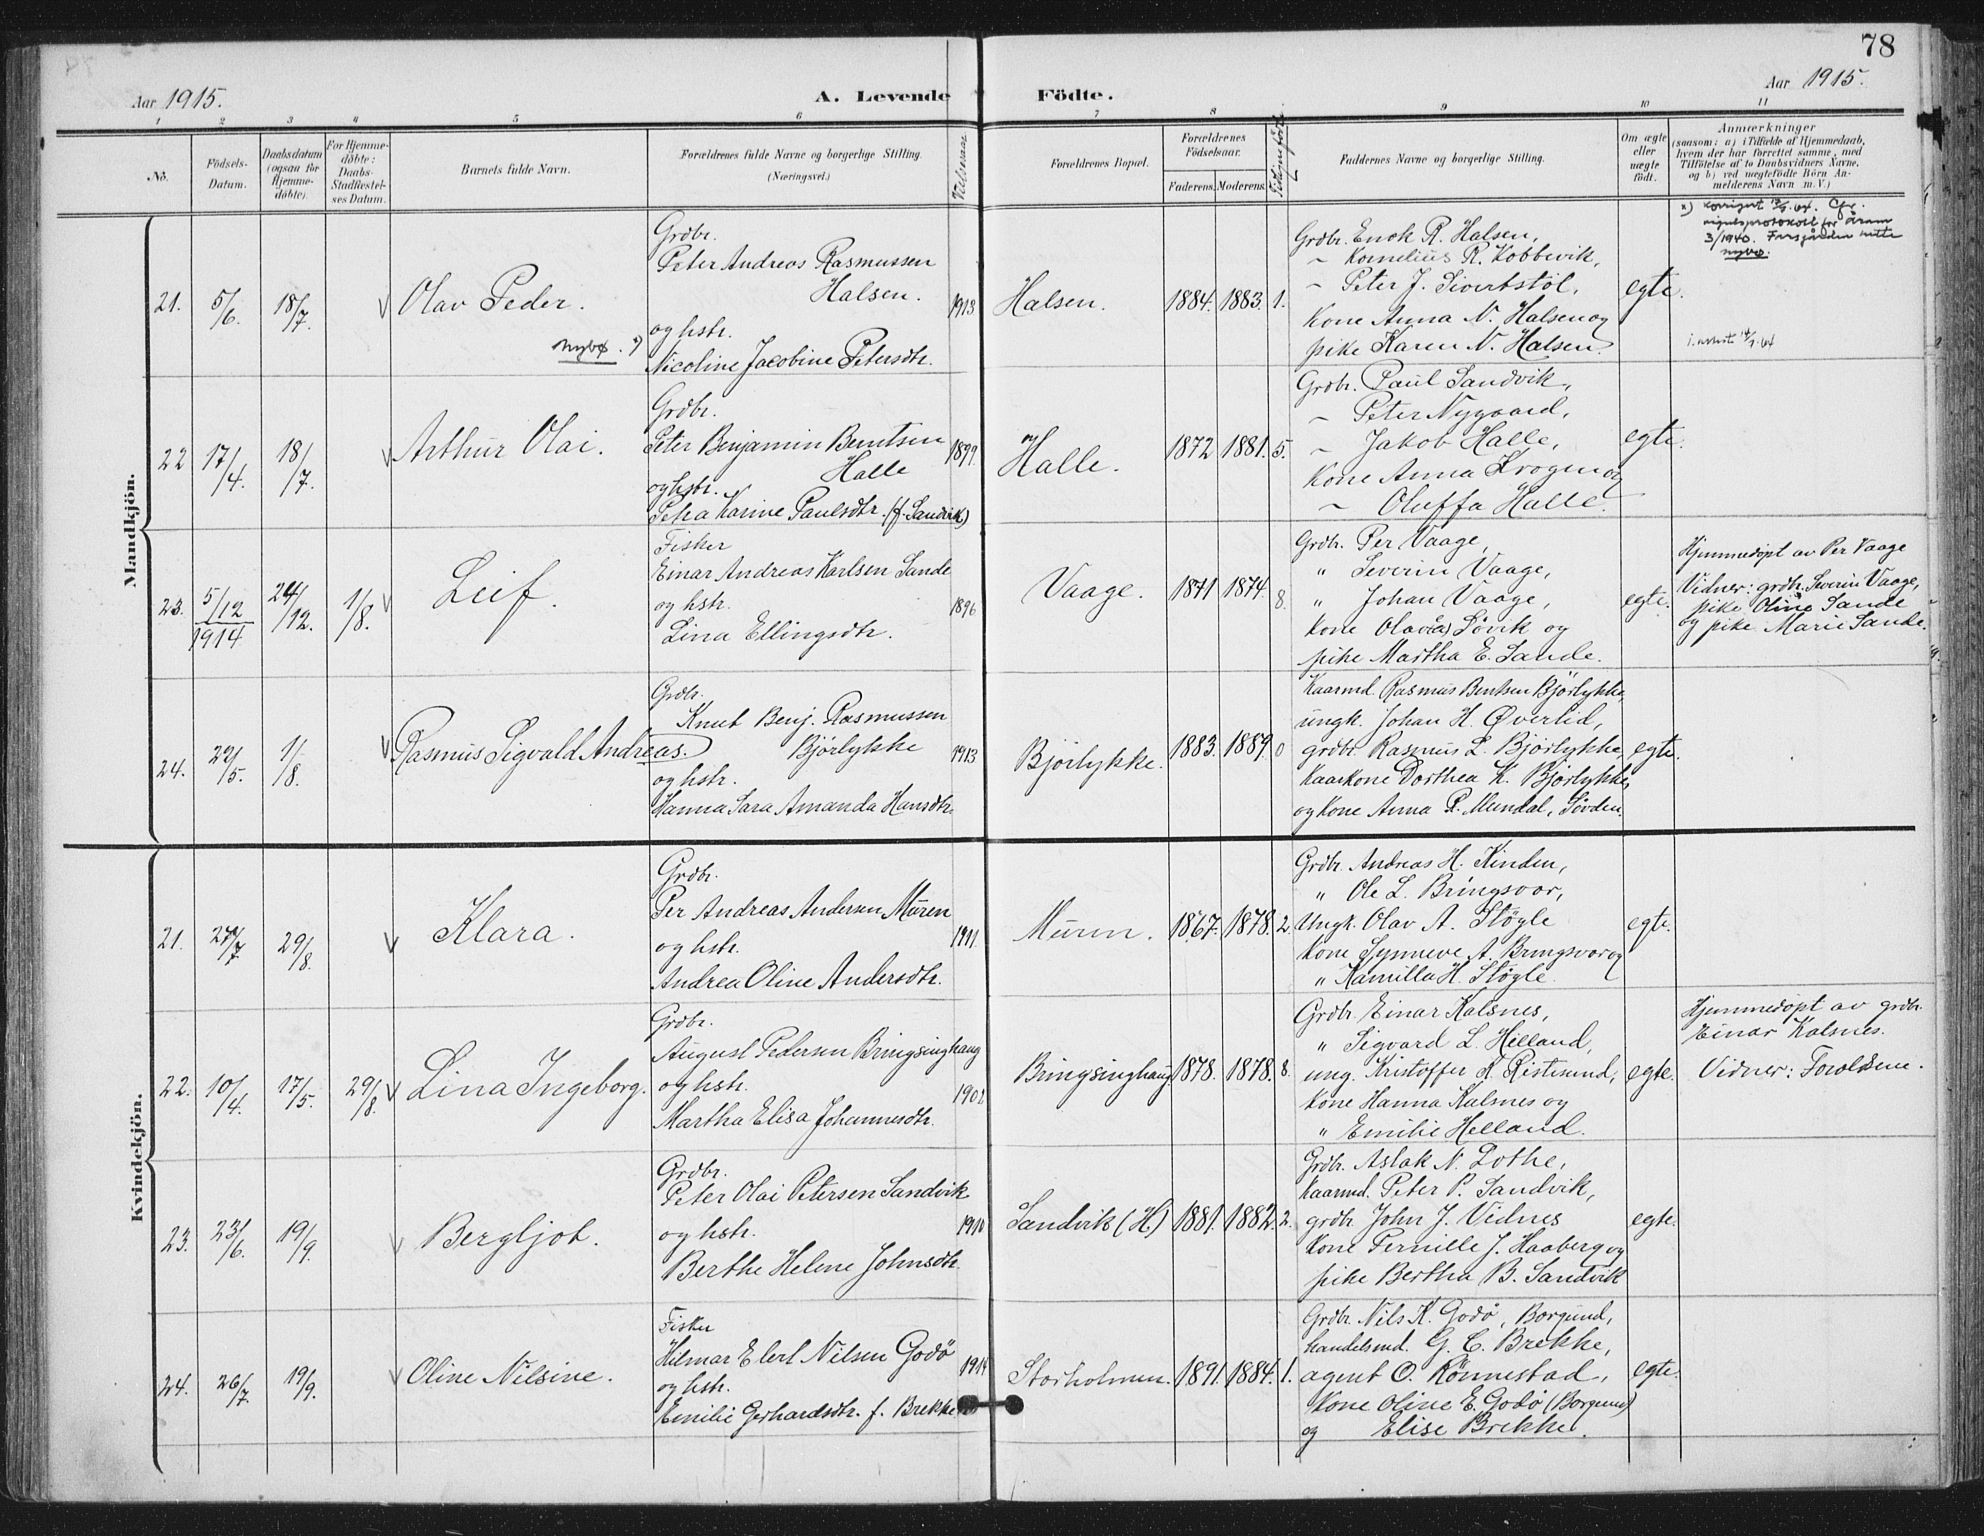 78
Aar 1915.
A. Levende Födte.
Aar 1915.
1 2 3 4 5 6 7 8 9 10 11
No.
Födsels-
Datum.
Daabsdatum
(ogsaa for
Hjemme-
döbte).
For Hjemme-
döbte:
Daabs-
Stadfæstel-
ses Datum.
Barnets fulde Navn.
Forældrenes fulde Navne og borgerlige Stilling.
(Næringsvei.)
Vielsesaar
Forældrenes Bopæl.
Forældrenes
Födselsaar.
Faderens. Moderens.
Faddernes Navne og borgerlig Stilling.
Om ægte
eller
uægte
födt.
Anmærkninger
(saasom: a) i Tilfælde af Hjemmedaab,
hvem der har forrettet samme, med
Tilföielse af to Daabsvidners Navne,
og b) ved uægtefödte Börn An-
melderens Navn m. V.)
Mandkjön.
21. 5/6. 18/7. Olav Peder.
Nybø. x)
Grdbr.
Peter Andreas Rasmussen
Halsen.
og hstr.
Nicoline Jacobine Petersdtr.
1913 Halsen. 1884. 1883. 1.
Grdbr. Enok R. Halsen,
~ Kornelius R. Kobbevik,
~ Peter J. Sivertstöl,
Kone Anna N. Halsen og
pike Karen N. Halsen.
egte.
x) Korrigert
3/1940.
nybø.
22 17/4. 18/7. Arthur Olai.
Grdbr.
Peter Benjamin Berntsen
Halle
og hstr.
Petra Karine Paulsdtr. (f. Sandvik)
1899. Halle. 1872 1881. 5.
Grdbr. Paul Sandvik,
~ Peter Nygaard,
~ Jakob Halle,
Kone Anna Krogen og
~ Oluffa Halle.
egte.
23. 5/12 1914 24/12. 1/8. Leif.
Fisker
Einar Andreas Karlsen Sande
og hstr.
Lina Ellingsdtr.
1896 Vaage. 1871 1874. 8.
Grdbr. Per Vaage,
" Severin Vaage,
" Johan Vaage,
Kone Olava Lövik og
pike Martha E. Sande.
egte.
Hjemmedöpt av Per Vaage
Vidner: grdbr. Severin Vaage,
pike Oline Sande
og pike Marie Sande.
24. 29/5. 1/8. Rasmus Sigvald Andreas.
Grdbr.
Knut Benj. Rasmussen
Bjørlykke
og hstr.
Hanna Sara Amanda Hansdtr.
1913 Bjørlykke. 1883. 1889. 0
Kaarmd. Rasmus Bentsen Bjørlykke,
ungk. Johan H. Øverlid,
grdbr. Rasmus L. Bjørlykke,
Kaarkone Dorthea K. Bjørlykke,
og Kone Anna R. Mundal, Søvden.
egte.
Kvindekjön.
21. 27/7 29/8. Klara.
Grdbr.
Per Andreas Andersen Muren
og hstr.
Andrea Oline Andersdtr.
1911. Muren. 1867. 1878. 2.
Grdbr. Andreas H. Kinden,
" Ole L. Bringsvor,
Ungk. Olav A. Støyle
Kone Synneve A. Bringsvor og
" Kamilla H. Støyle.
egte.
22. 10/4. 17/5. 29/8. Lina Ingeborg.
Grdbr.
August Pedersen Bringsinghaug
og hstr.
Martha Elisa Johannesdtr.
1902 Bringsinghaug 1878. 1878. 8.
Grdbr. Einar Kalsnes,
" Sigvard L. Helland,
ung. Kristoffer K. Ristesund,
Kone Hanna Kalsnes og
" Emilie Helland.
egte.
Hjemmedöpt av grdbr.
Einar Kalsnes.
Vidner: Foreldrene.
23. 23/6. 19/9. Bergljot.
Grdbr.
Peter Olai Petersen Sandvik
og hstr.
Berthe Helene Johnsdtr.
1910 Sandvik (H) 1881. 1882. 2.
Grdbr. Aslak N. Lothe,
Kaarmd. Peter P. Sandvik,
grdbr. John J. Vidnes
Kone Pernille J. Haaberg og
pike Bertha B. Sandvik
egte.
24. 26/7. 19/9. Oline Nilsine.
Fisker
Hilmar Elert Nilsen Godö
og hstr.
Emilie Gerhardsdtr. f. Brekke
1914 Storholmen. 1891. 1884. 1.
Grdbr. Nils K. Godö, Borgund,
handelsmd. G. C. Brekke,
agent O. Rönnestad,
Kone Oline E. Godö (Borgund)
og Elise Brekke.
egte.